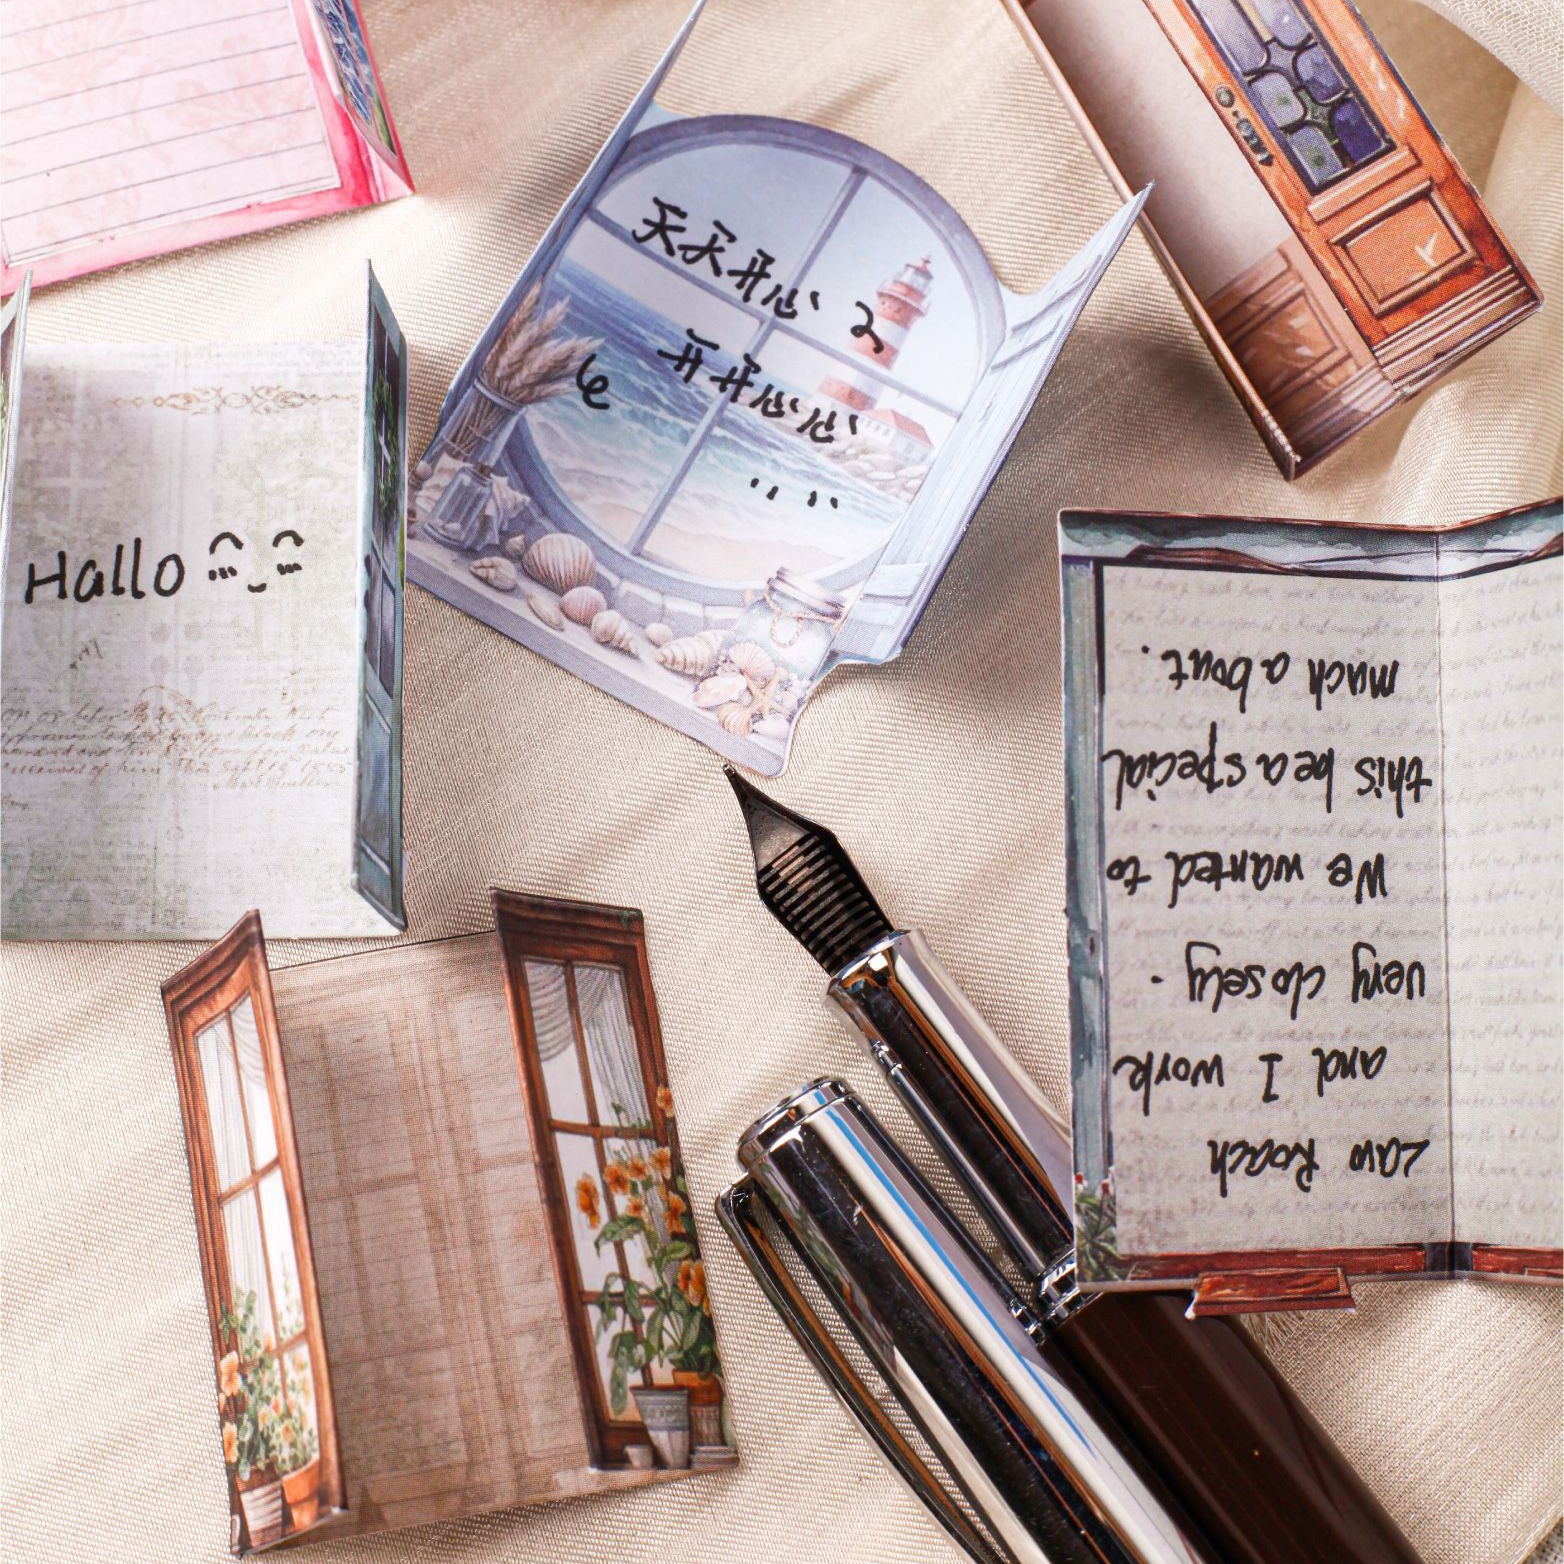 天天开心
开开心心
Hallo
Law Roach
and I work
very closely.
We wanted to
this be a special
much about.